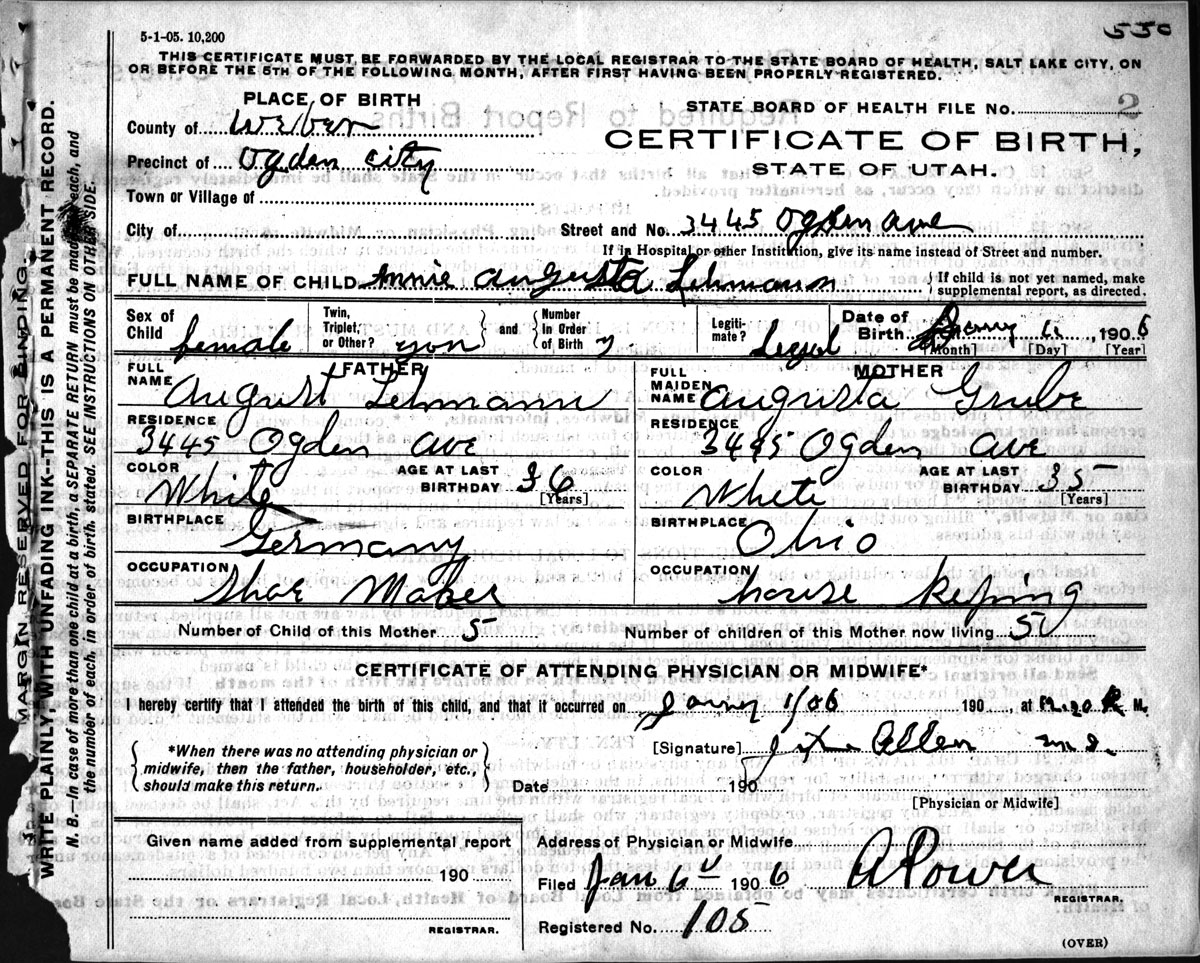 5-1-05. 10,200
550
THIS CERTIFICATE MUST BE FORWARDED BY THE LOCAL REGISTRAR TO THE STATE BOARD OF HEALTH, SALT LAKE CITY, ON
OR BEFORE THE 5TH OF THE FOLLOWING MONTH, AFTER FIRST HAVING BEEN PROPERLY REGISTERED.
PLACE OF BIRTH
STATE BOARD OF HEALTH FILE NO. 2
County of Weber
CERTIFICATE OF BIRTH,
Precinct of Ogden City
STATE OF UTAH.
Town or Village of
City of
Street and No. 3445 Ogden ave
If in Hospital or other Institution, give its name instead of Street and number.
FULL NAME OF CHILD Annie Augusta Lehmann
If child is not yet named, make
supplemental report, as directed.
Sex of Child female
Twin, Triplet, or Other?
and
Number in Order of Birth
Legiti-mate? Legal
Date of Birth 1906
[Month] [Day] [Year]
FATHER
FULL NAME August Lehmann
RESIDENCE
3445 Ogden ave
COLOR White
AGE AT LAST BIRTHDAY 36
[Years]
BIRTHPLACE Germany
OCCUPATION Shoe Maker
MOTHER
FULL MAIDEN NAME Augusta Grube
RESIDENCE
3445 Ogden ave
COLOR White
AGE AT LAST BIRTHDAY 35
[Years]
BIRTHPLACE Ohio
OCCUPATION house keping
Number of Child of this Mother 5
Number of children of this Mother now living 5
CERTIFICATE OF ATTENDING PHYSICIAN OR MIDWIFE*
I hereby certify that I attended the birth of this child, and that it occurred on 1/06 190 , at M.
*When there was no attending physician or
midwife, then the father, householder, etc.,
should make this return.
[Signature] Allen M.D.
Date 190
[Physician or Midwife]
Given name added from supplemental report
190
REGISTRAR.
Address of Physician or Midwife
Filed Jan 6 1906
A Power
REGISTRAR.
Registered No. 105
(OVER)
MARGIN RESERVED FOR BINDING.
WRITE PLAINLY, WITH UNFADING INK--THIS IS A PERMANENT RECORD.
N. B. In case of more than one child at a birth, a SEPARATE RETURN must be made for each, and
the number of each, in order of birth, stated. SEE INSTRUCTIONS ON OTHER SIDE.